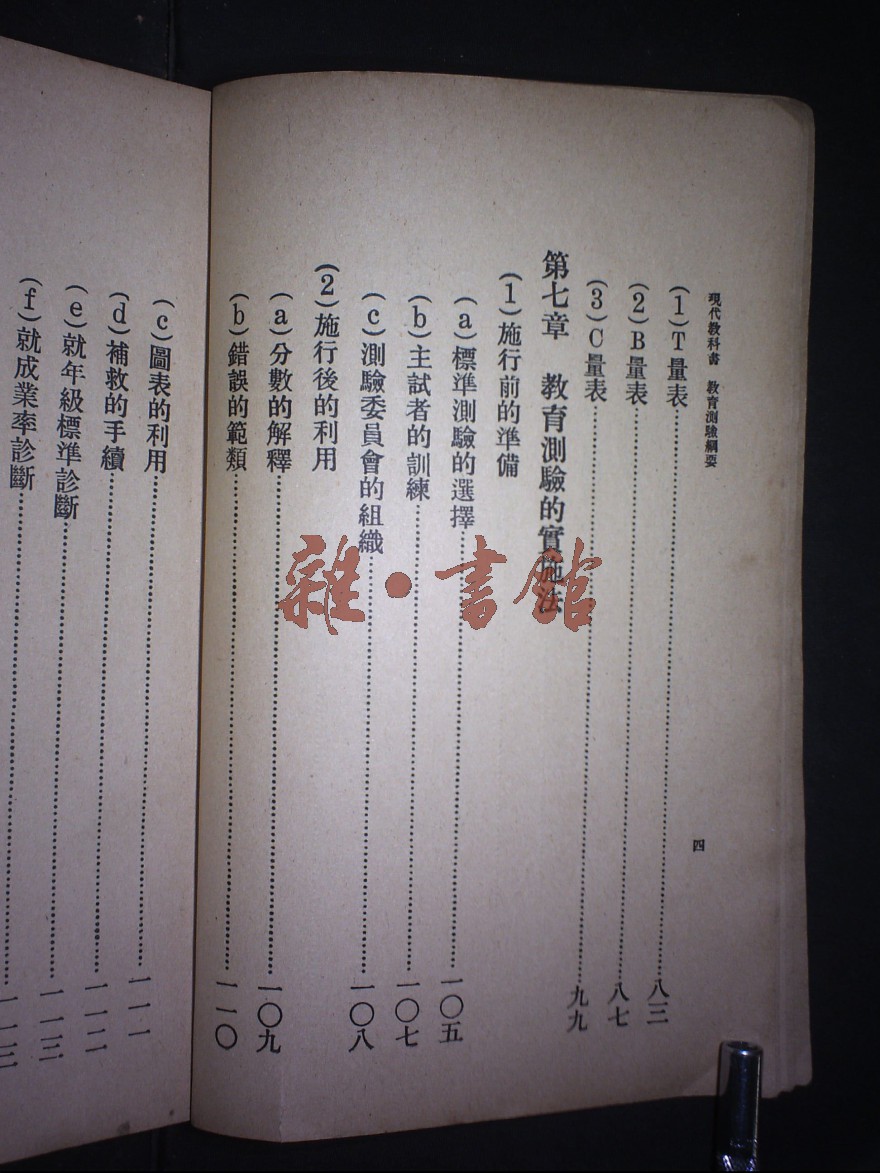 現代教科書 教育測驗綱要
四
(1)T量表……八二
(2)B量表……八七
(3)C量表……九九
第七章 教育測驗的實施法
(1)施行前的準備
(a)標準測驗的選擇……一〇五
(b)主試者的訓練……一〇七
(c)測驗委員會的組織……一〇八
(2)施行後的利用
(a)分數的解釋……一〇九
(b)錯誤的範類……一一〇
(c)圖表的利用……一一一
(d)補救的手續……一一二
(e)就年級標準診斷……一一三
(f)就成業率診斷……一一三
雜·書館